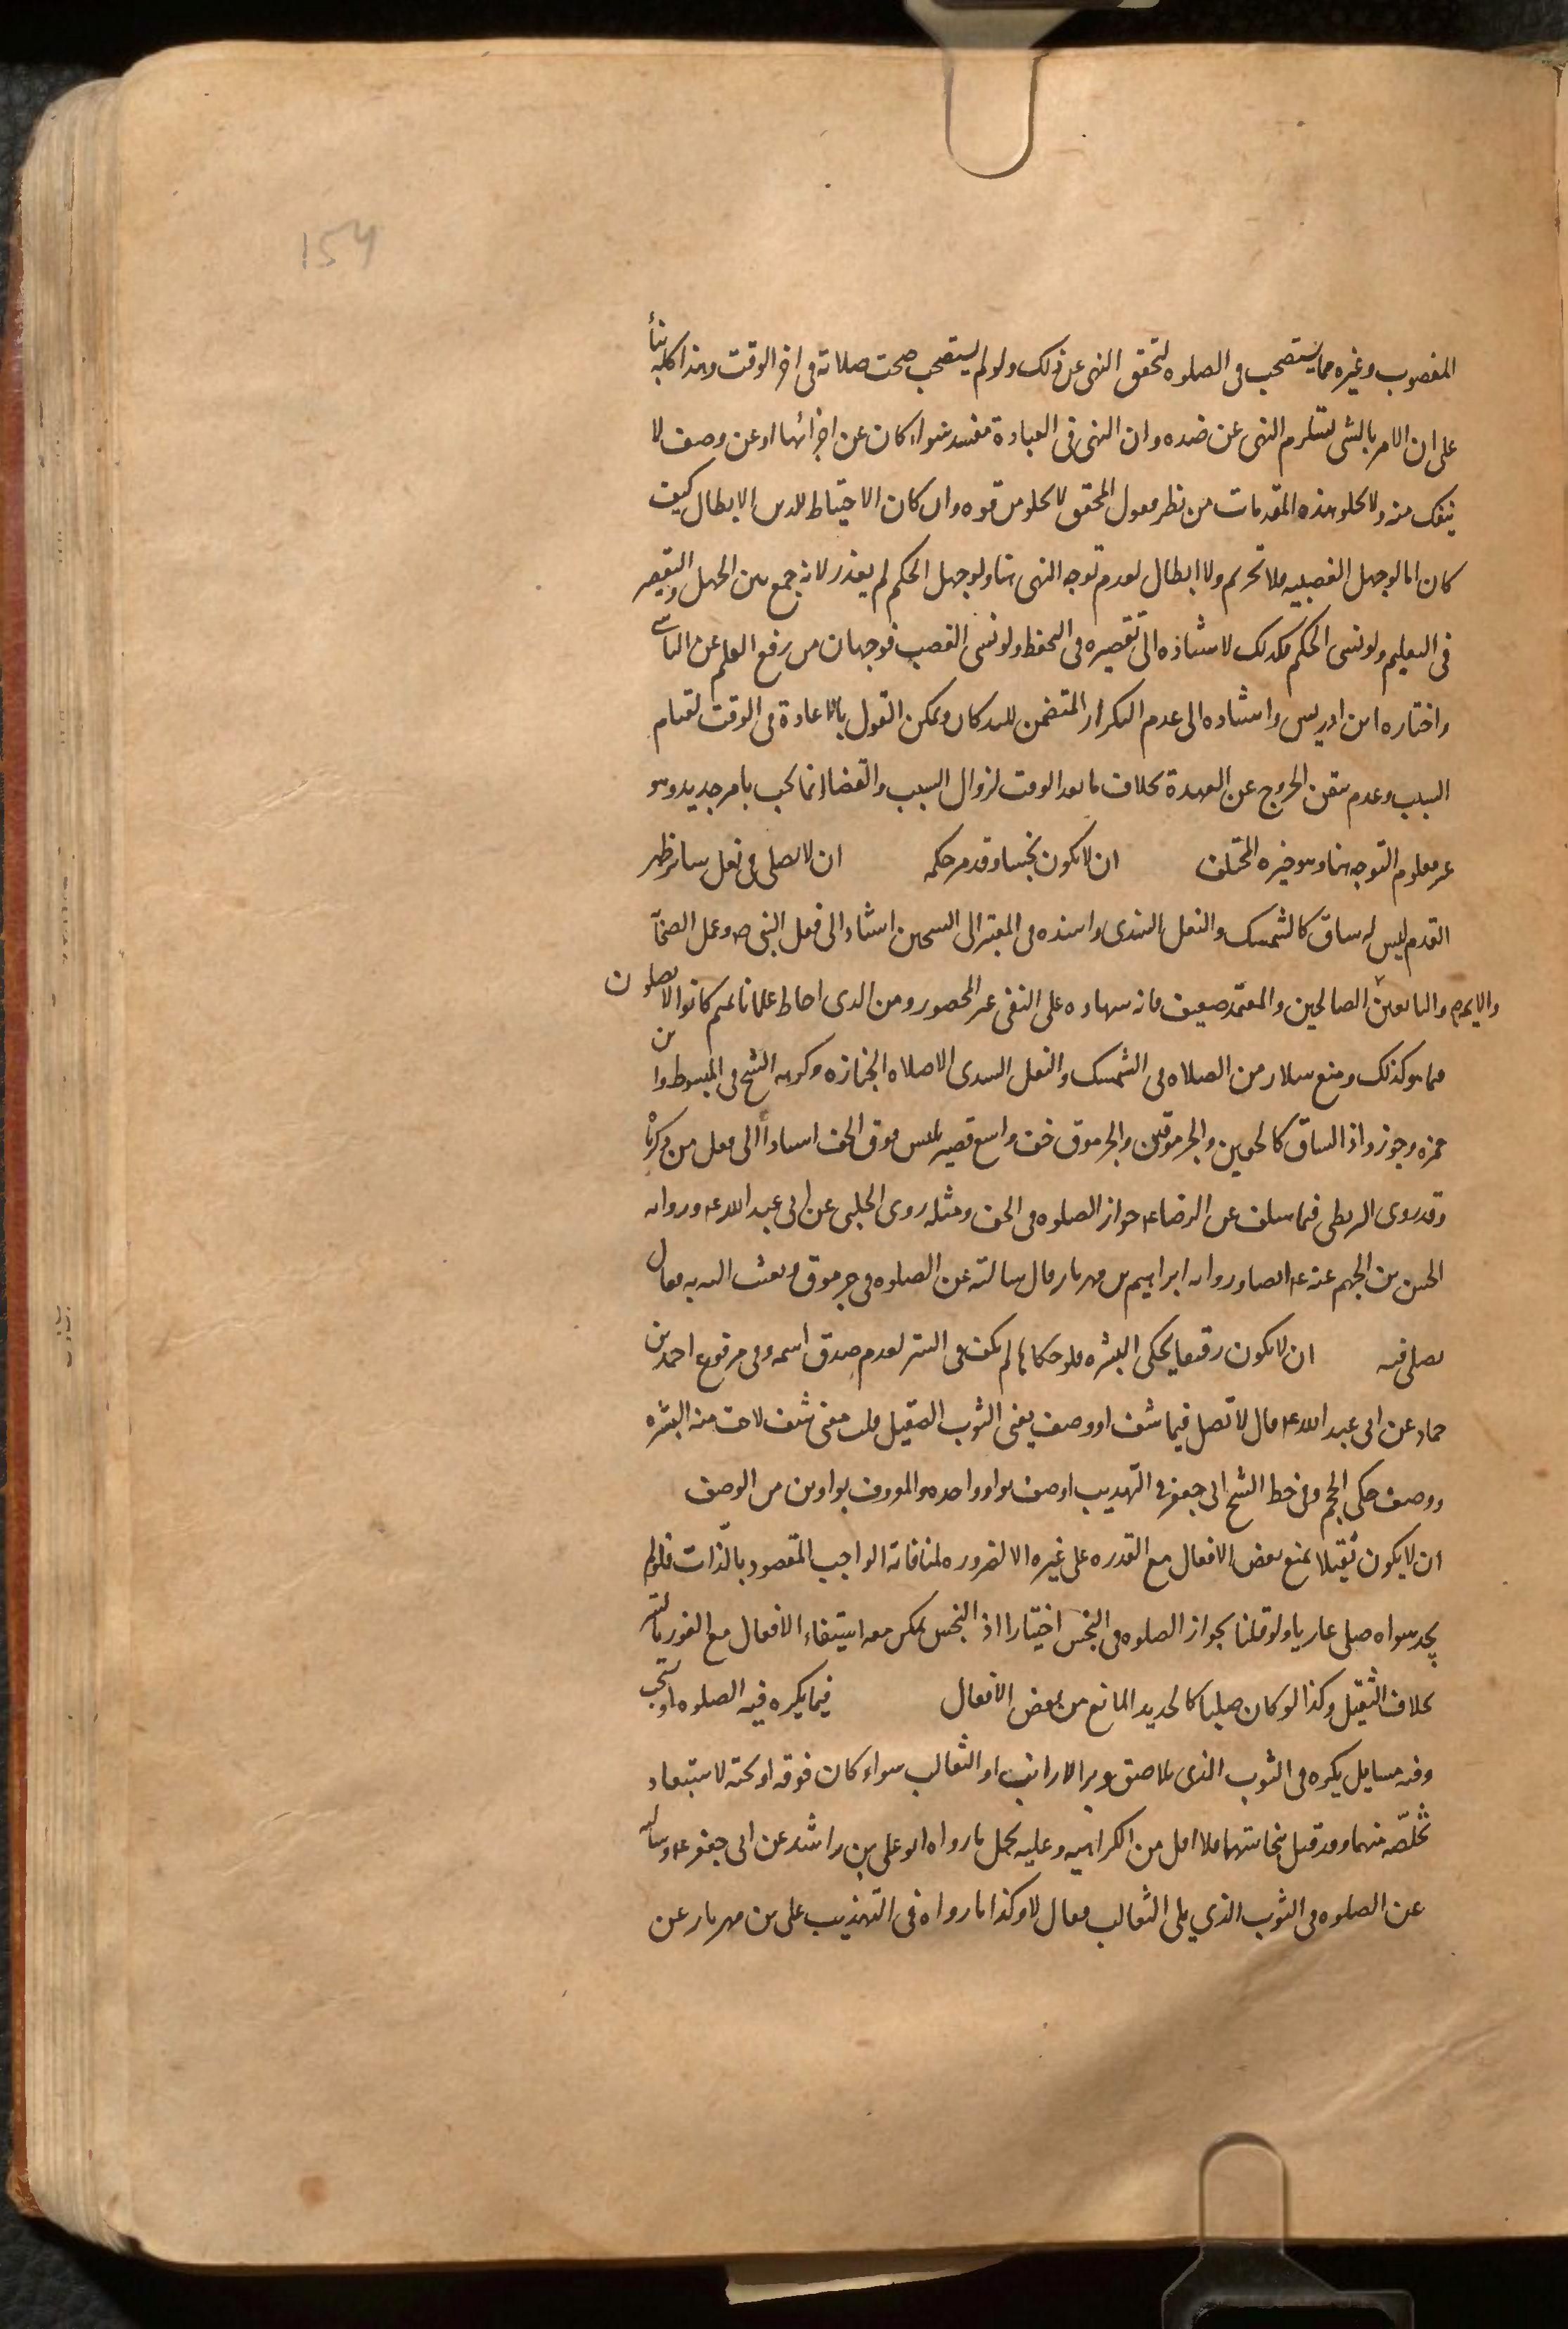 154
المغصوب وغيره مما يستصحب فى الصلوه لتحقق النهى عن ذلك ولو لم يستصحب صحت صلاته فى اخر الوقت وهذا كله بنأ
على ان الامر بالشى يستلزم النهى عن ضده وان النهى فى العبادة مفسد سواء كان عن اجزائها او عن وصف لا
ينفك منه ولا يخلو هذه المقدمات من نظر فقول المحقق لا يخلو من قوه وان كان الاحتياط للدين الابطال كيف
كان اما لو جهل الغصبيه فلا تحريم ولا ابطال لعدم توجه النهى هنا ولو جهل الحكم لم يعذر لانه جمع بين الجهل والتقصير
فى التعليم ولو نسى الحكم فكذلك لاستناده الى تقصيره فى التحفظ ولو نسى الغصب فوجهان من رفع القلم عن الناسى
واختاره ابن ادريس واستناده الى عدم التكرار المتضمن للتذكار ويمكن القول بالاعادة فى الوقت لقيام
السبب وعدم تيقن الخروج عن العهدة بخلاف ما بعد الوقت لزوال السبب والقضاء انما يجب بامر جديد وهو
غير معلوم التوجه هنا وهو خيره المختلف ان لا يكون نجسا وقد مر حكمه ان لا يصلى فى نعل ساتر ظهر
القدم ليس له ساق كالشمشك والنعل السندى واسنده فى المعتبر الى الشيخين استنادا الى فعل النبى ص وعمل الصحابة
والايمه والتابعين الصالحين والمعتمد ضعيف فانه شهاده على النفى غير المحصور ومن الذى احاط علما بانهم كانوا لا يصلون
فيما هو كذلك ومنع سلار من الصلاه فى الشمشك والنعل السندى الا صلاه الجنازه وكرهه الشيخ فى المبسوط وابن
حمزه وجوزوا ذا الساق كالخفين والجرموقين والجرموق خف واسع قصير يلبس فوق الخف استنادا الى فعل من ذكرنا
وقد روى البزنطى فيما سلف عن الرضا ع جواز الصلوه فى الخف ومثله روى الحلبى عن ابى عبد الله ع ورواه
الحسن بن الجهم عنه ع ايضا ورواه ابراهيم بن مهزيار قال سالته عن الصلوه فى جرموق وبعثت اليه به فقال
يصلى فيه ان لا يكون رقيقا يحكى البشره فلو حكاها لم يكف فى الستر لعدم صدق اسمه وفى مرفوع احمد بن
حماد عن ابى عبد الله ع قال لا تصل فيما شف او وصف يعنى الثوب الصقيل قلت معنى شف لاحت منه البشره
ووصف حكى الحجم وفى خط الشيخ ابى جعفر فى التهذيب اوصف بواو واحده والمعروف بواوين من الوصف
ان لا يكون ثقيلا يمنع بعض الافعال مع القدره على غيره الا لضروره لمنافاته الواجب المقصود بالذات فلو لم
يجد سواه صلى عاريا ولو قلنا بجواز الصلوه فى النجس اختيارا اذ النجس يمكن معه استيفاء الافعال مع الفوز بالستر
بخلاف الثقيل وكذا لو كان صلبا كالحديد المانع من بعض الافعال فيما يكره فيه الصلوه او يستحب
وفيه مسايل يكره فى الثوب الذى يلاصق وبر الارانب او الثعالب سواء كان فوقه او تحته لاستبعاد
تخلصه منهما وقد قيل بنجاستهما فلا اقل من الكراهيه وعليه يحمل ما رواه ابو على بن راشد عن ابى جعفر ع وساله
عن الصلوه فى الثوب الذى يلى الثعالب فقال لا وكذا ما رواه فى التهذيب على بن مهزيار عن